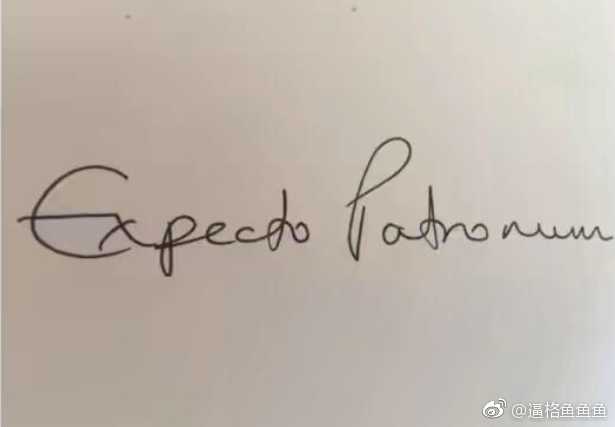 Expecto Patronum
@逼格鱼鱼鱼